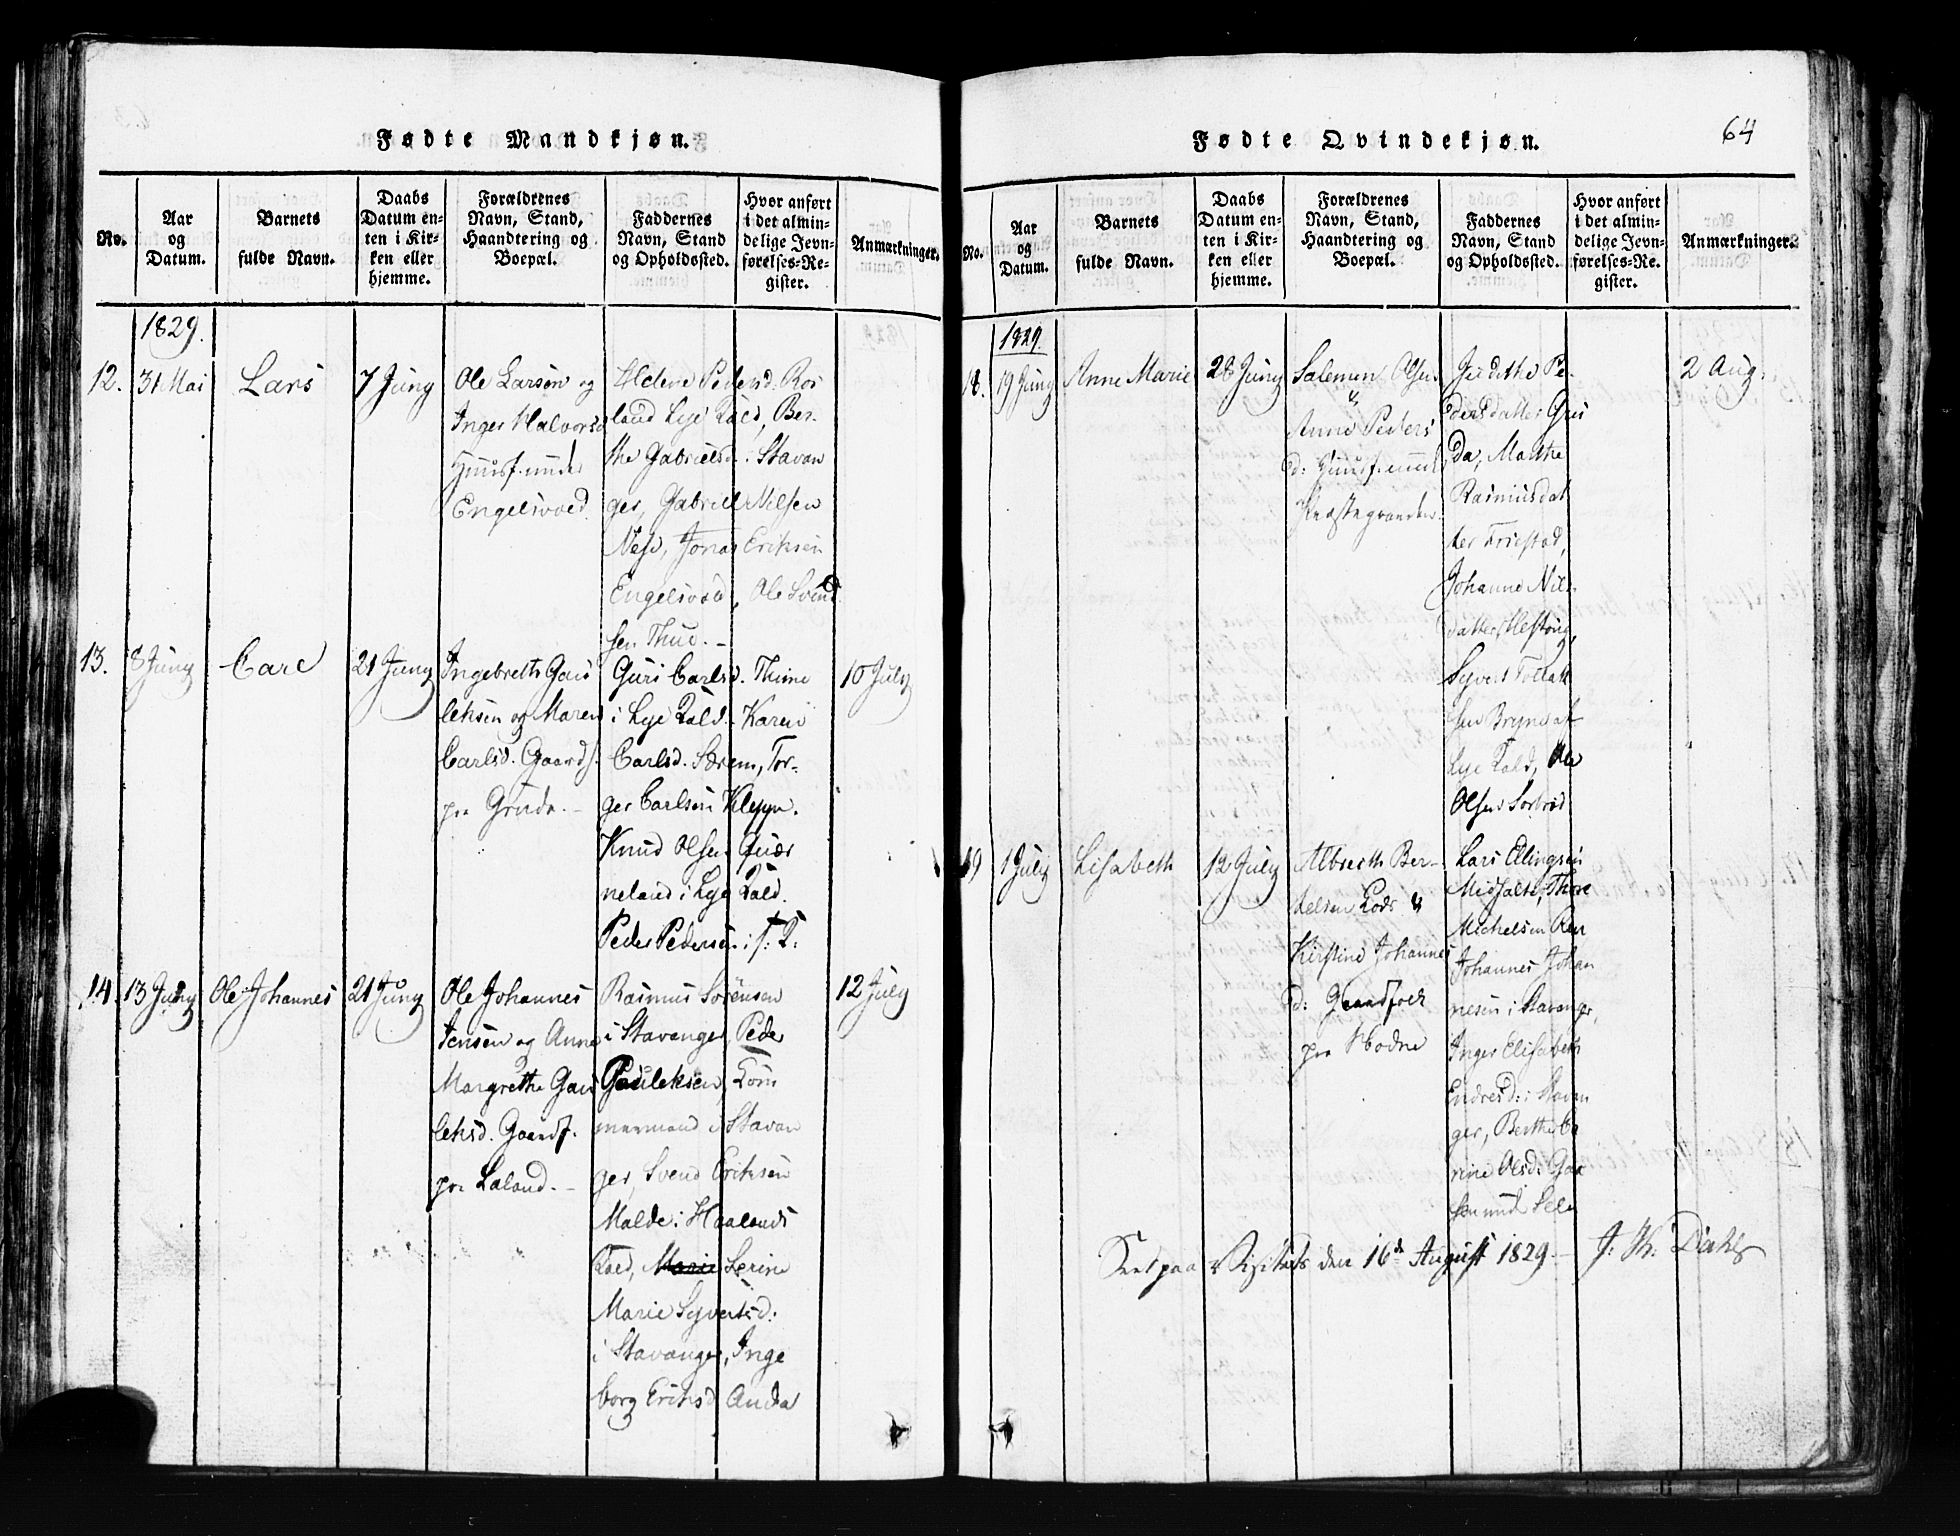 64
Fødte Mandkjøn.
No.
Aar
og
Datum.
Barnets
fulde Navn.
Daabs
Datum en-
ten i Kir-
ken eller
hjemme.
Forældrenes
Navn, Stand,
Haandtering og
Boepæl.
Faddernes
Navn, Stand
og Opholdssted.
Hvor anført
i det almin-
delige Jevn-
førelses-Re-
gister.
Anmærkninger.
1829.
12.
31 Mai
Lars
7 Juny
Ole Larsen og
Inger Halvorsd
Huusf. under
Engelsvoed
Peders d. Ros
land Lye Qald, Ber-
the Gabrielsd. i Stavan
ger, Gabriel Nilsen
Nese, Jonas Eriksen
Engelsvoed, Ole Svend
sen Thue. -
13.
8 Juny
Carl
21 Juny
Ingebreth Gau
leksen og Maren
Carlsd. Gaardf.
paa Gruda. -
Guri Carlsd. Thime
i Lye Qald. Karen
Carlsd. Særem, Tor-
ger Carlsen Kleppe.
Knud Olsen Quær
neland i Lye Qald.
Peder Pedersen i s: Q:
10 July
14.
13 Juny
Ole Johannes
21 Juny
Ole Johannes
Jensen og Anne
Margrethe Gau
leksd. Gaardf.
paa Laland. -
Rasmus Sörensen
i Stavanger, Peder
Gauleksen, Töm
mermand i Stavan
ger, Svend Eriksen
Malde i Haalands
Qald, Serine
Marie Syvertsd:
i Stavanger, Inge
borg Eriksd Anda
12 July
Fødte Qvindekjøn.
No.
Aar
og
Datum.
Barnets
fulde Navn.
Daabs
Datum en-
ten i Kir-
ken eller
hjemme.
Forældrenes
Navn, Stand,
Haandtering og
Boepæl.
Faddernes
Navn, Stand
og Opholdssted.
Hvor anført
i det almin-
delige Jevn-
førelses-Re-
gister.
Anmærkninger.
1829.
18.
19 Juny
Anne Marie
28 Juny
Salemon Olsen
&
Anne Peders
d: Huusf. und
Judithe Pe-
dersdatter Gru
da, Marthe
Rasmusdat
ter Friestad,
Johanne Nils
datter
Syvert Tollak
sen Bryne af
Lye Qald, Ole
Olsen
2 Aug.
19
1 July
Lisabeth
12 July
Albreth Ber-
telsen &
Kirstine Johannes
d: Gaardfolk
paa Hodne
Lars Ellingsen
Thore
Michelsen Ree
Johannes Johan
nesen i Stavanger,
Inger Elisabeth
Endresd: i Stavan
ger, Berthe Ca
rine Olsd: Gaa
Sele
Seet paa Visitats den 16de August 1829. -